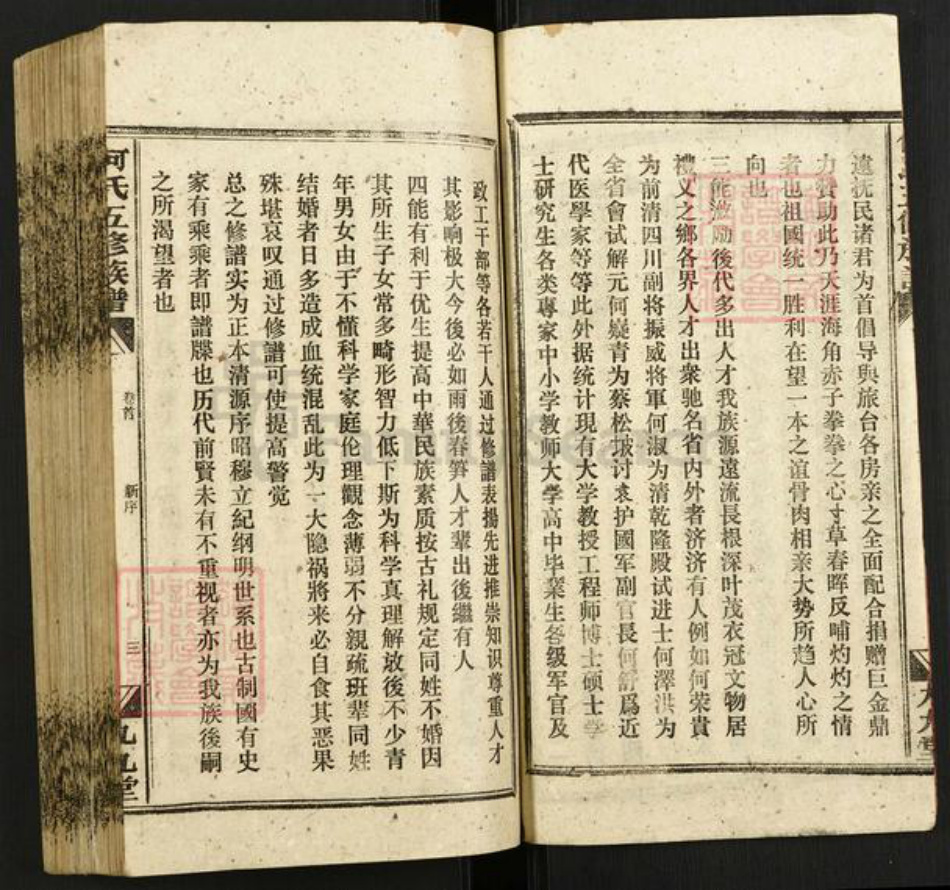 遠抚民诸君为首倡导與旅台各房亲之全面配合捐赠巨金鼎
力贊助此乃天涯海角赤子拳拳之心寸草春晖反哺灼灼之情
者也祖國统一胜利在望一本之谊骨肉相亲大势所趋人心所
向也
三能激励後代多出人才我族源遠流長根深叶茂衣冠文物居
禮义之鄉各界人才出衆驰名省内外者济济有人例如何荣貴
为前清四川副将振威将軍何淑为清乾隆殿试进士何澤洪为
全省會试解元何嶷青为蔡松坡讨袁护國軍副官長何舒爲近
代医學家等等此外据统计现有大学教授工程师博士硕士学
士研究生各类專家中小学教师大學高中毕業生各级军官及
政工干部等各若干人通过修譜表揚先进推崇知识尊重人才
其影响极大今後必如雨後春笋人才辈出後繼有人
四能有利于优生提高中華民族素质按古礼规定同姓不婚因
其所生子女常多畸形智力低下斯为科学真理解放後不少青
年男女由于不懂科学家庭伦理觀念薄弱不分親疏班辈同姓
结婚者日多造成血统混乱此为一大隐祸將来必自食其恶果
殊堪哀叹通过修譜可使提高警觉
总之修譜实为正本清源序昭穆立紀纲明世系也古制國有史
家有乘乘者即譜牒也历代前賢未有不重视者亦为我族後嗣
之所渴望者也
何氏五修族谱
卷首
新序
三
九九堂